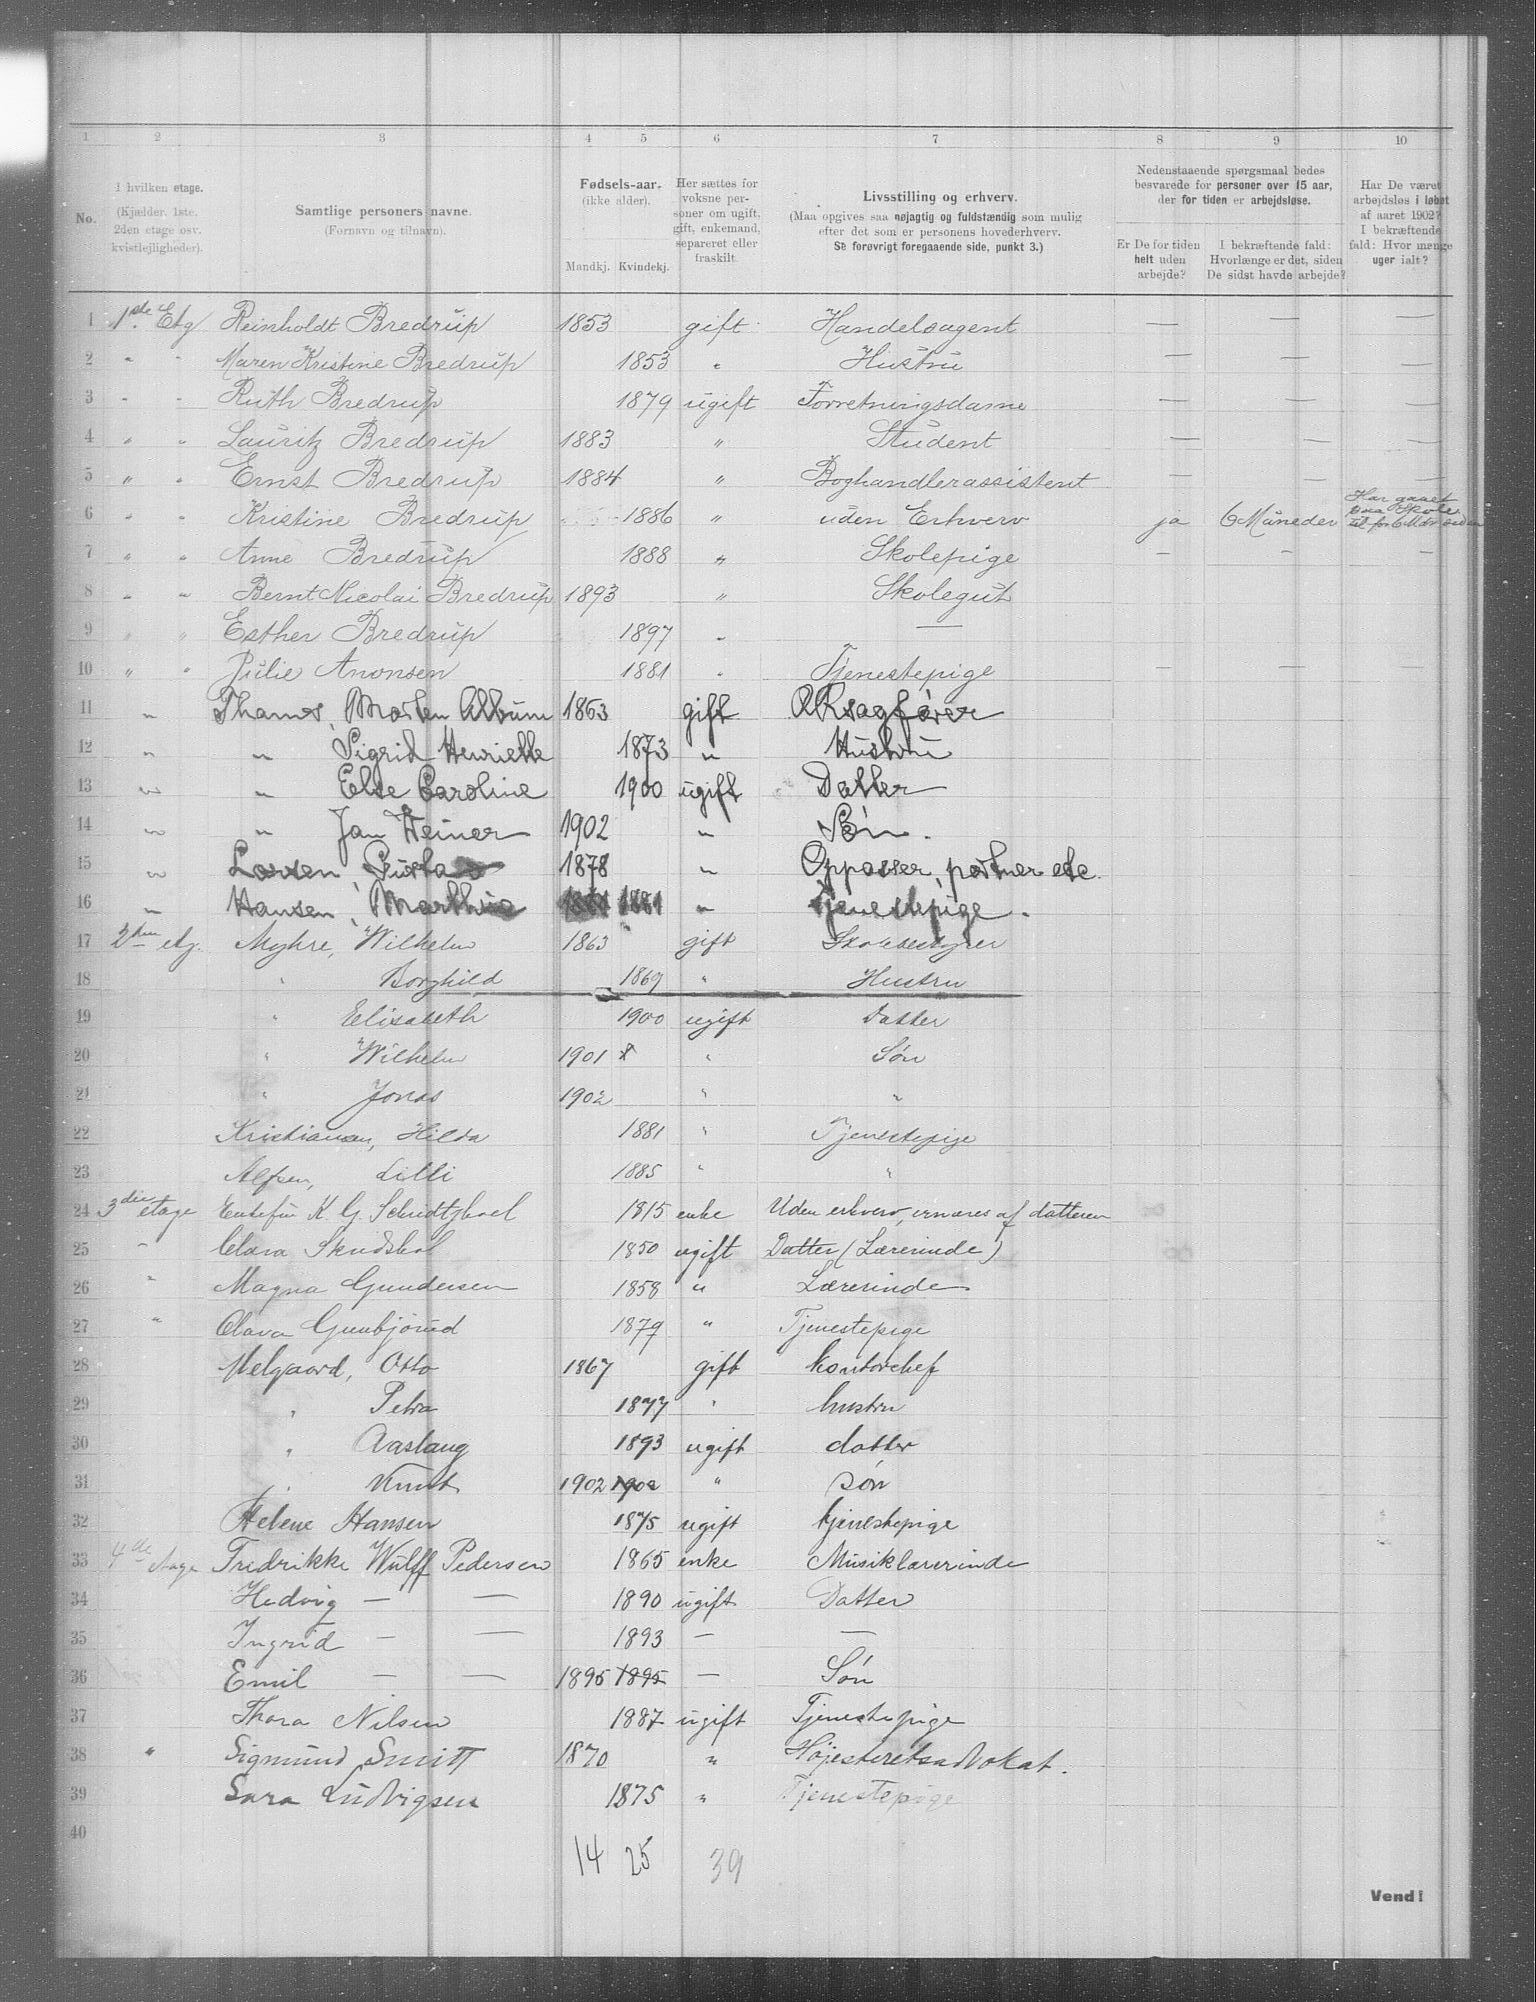 1 2 3 4 5 6 7 8 9 10
No.
I hvilken etage. (Kjælder, 1ste, 2den etage osv. kvistlejligheder).
Samtlige personers navne. (Fornavn og tilnavn).
Fødsels-aar. (ikke alder).
Mandkj. Kvindekj.
Her sættes for voksne personer om ugift, gift, enkemand, separeret eller fraskilt.
Livsstilling og erhverv.
(Maa opgives saa nøjagtig og fuldstændig som mulig efter det som er personens hovederhverv.
Se forøvrigt foregaaende side, punkt 3.)
Nedenstaaende spørgsmaal bedes besvarede for personer over 15 aar, der for tiden er arbejdsløse.
Er De for tiden helt uden arbejde?
I bekræftende fald: Hvorlænge er det, siden De sidst havde arbejde?
Har De været arbejdsløs i løbet af aaret 1902? I bekræftende fald: Hvor mange uger ialt?
1 1ste Etg Reinholdt Bredrup 1853 gift Handelsagent — — —
2 " " Maren Kristine Bredrup 1853 " Hustru — — —
3 " " Ruth Bredrup 1879 ugift Forretningsdame — — —
4 " " Lauritz Bredrup 1883 " Student — — —
5 " " Ernst Bredrup 1884 " Boghandlerassistent — — —
6 " " Kristine Bredrup 1886 " uden Erhverv ja 6 Maaneder Har gaaet paa Skole til for 6 Mdr siden
7 " " Anne Bredrup 1888 " Skolepige — — —
8 " " Bernt Nicolai Bredrup 1893 " Skolegut
9 " " Esther Bredrup 1897 " —
10 " " Julie Aronsen 1881 " Tjenestepige — — —
11 " Thams, Morten Album 1863 gift ORsagfører
12 " " Sigrid Henriette 1873 " Hustru
13 " " Else Caroline 1900 ugift Datter
14 " " Jan Heiner 1902 " Søn.
15 " Larsen, Gustav 1878 " Oppasser, portner etc.
16 " Hansen, Marthine 1881 1881 " Tjenestepige.
17 2den etg. Myhre, Wilhelm 1863 gift Skolebestyrer
18 " Borghild 1869 " Hustru
19 " Elisabeth 1900 ugift Datter
20 " Wilhelm 1901 " Søn
21 " Jonas 1902 " "
22 Kristiansen, Hilda 1881 " Tjenestepige
23 Alfsen, Lilli 1885 " "
24 3die etage Enkefru K. G. 1815 enke Uden erhverv, ernæres af datteren
25 " Clara 1850 ugift Datter (Lærerinde)
26 " Magna Gundersen 1858 " Lærerinde
27 " Olava Gunbjørud 1879 " Tjenestepige
28 Melgaard, Otto 1867 gift kontorchef
29 " Petra 1877 " hustru
30 " Aaslaug 1893 ugift datter
31 " Knut 1902 1902 " søn
32 Helene Hansen 1875 ugift tjenestepige
33 4de etage Fredrikke Wulff Pedersen 1865 enke Musiklærerinde
34 Hedvig — — 1890 ugift Datter
35 Ingrid — — 1893 — —
36 Emil — — 1895 1895 — Søn
37 Thora Nilsen 1887 ugift Tjenestepige
38 " Sigmund Smitt 1870 " Højesteretsadvokat.
39 Sara Ludvigsen 1875 " Tjenestepige
40
14 25 39
Vend!